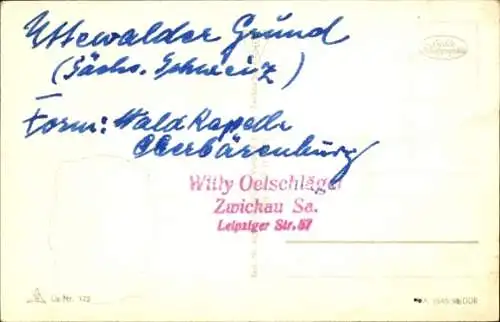 Uttewalder Grund
(Sächs. Schweiz)
Form: Waldkapelle
Oberbärenburg
Willy Oelschlägel
Zwickau Sa.
Leipziger Str. 57
DDR